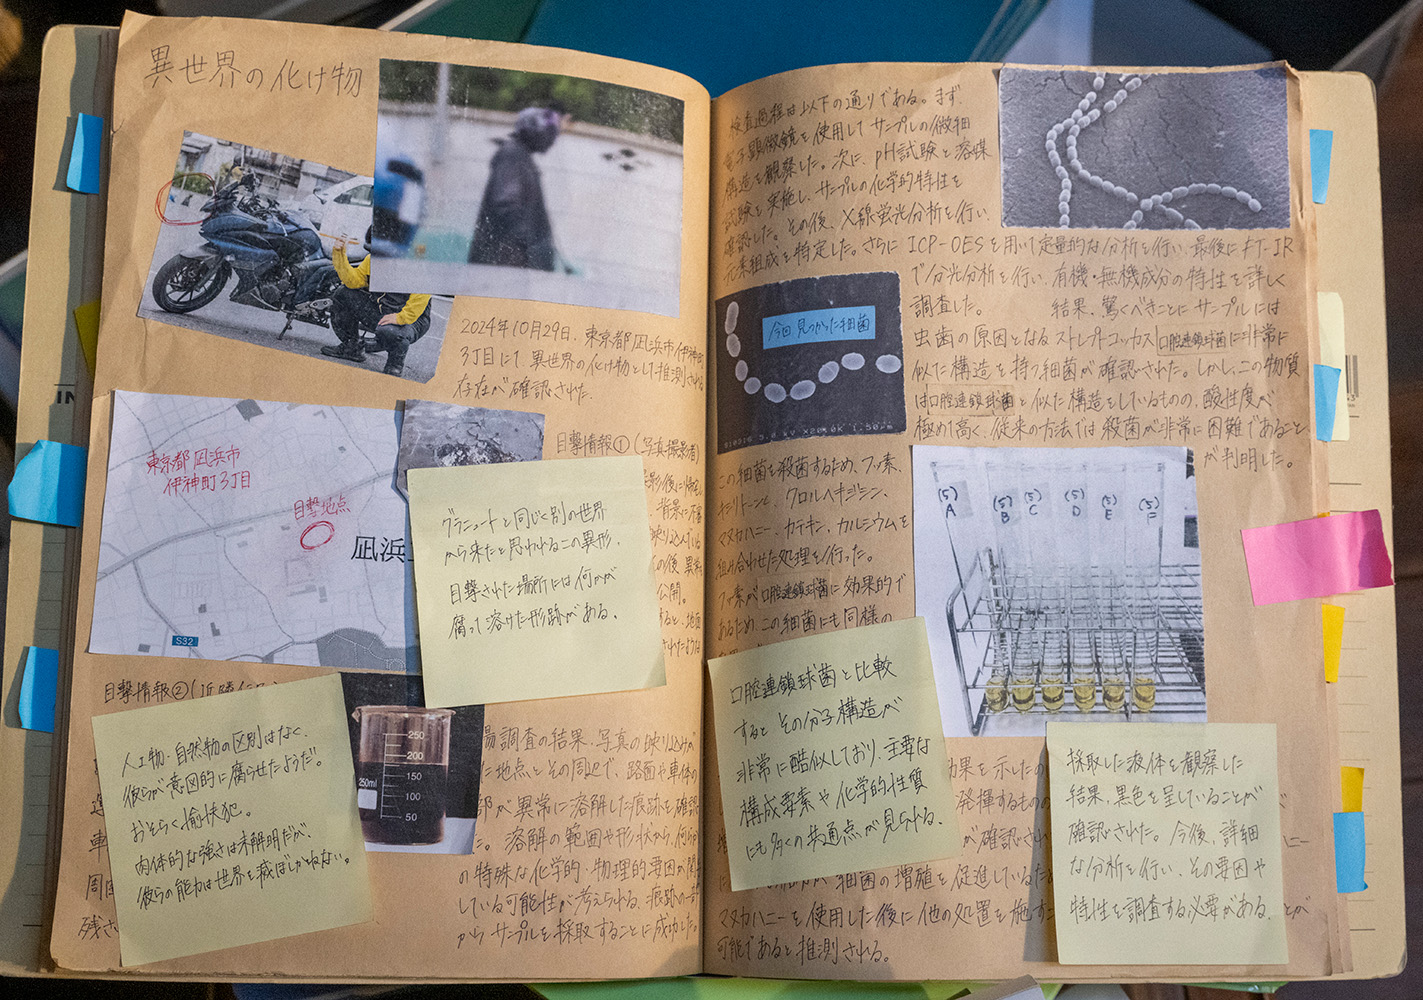 異世界の化け物
2024年10月29日、東京都凪浜市伊神町
3丁目にて異世界の化け物として推測される
存在が確認された。
東京都凪浜市
伊神町3丁目
目撃地点
凪浜
S32
目撃情報①(写真撮影者)
グラニュートと同じく別の世界
から来たと思われるこの異形、
目撃された場所には何かが
腐って溶けた形跡がある。
の後、異常
公開。
目撃情報②
人工物、自然物の区別はなく、
彼らが意図的に腐らせたようだ。
おそらく愉快犯。
肉体的な強さは未解明だが、
彼らの能力は世界を滅ぼしかねない。
周囲
残さ
250ml
250
200
150
100
50
場調査の結果、写真の映り込みが
た地点とその周辺で、路面や車体の
部が異常に溶解した痕跡を確認
た。溶解の範囲や形状から、何らか
の特殊な化学的・物理的要因が関与
している可能性が考えられる。痕跡の一部
からサンプルを採取することに成功した。
検査過程は以下の通りである。まず、
電子顕微鏡を使用してサンプルの微細
構造を観察した。次に、pH試験と溶媒
試験を実施し、サンプルの化学的特性を
確認した。その後、X線蛍光分析を行い、
元素組成を特定した。さらにICP-OESを用いて定量的な分析を行い、最後にFT-IR
で分光分析を行い、有機・無機成分の特性を詳しく
調査した。 結果、驚くべきことにサンプルには
虫歯の原因となるストレプトコッカス口腔連鎖球菌に非常に
似た構造を持つ細菌が確認された。しかし、この物質
は口腔連鎖球菌と似た構造をしているものの、酸性度が
極めて高く、従来の方法では殺菌が非常に困難であること
が判明した。
今回、見つかった細菌
この細菌を殺菌するため、フッ素、
キシリトール、クロルヘキシジン、
マヌカハニー、カテキン、カルシウムを
組み合わせた処理を行った。
フッ素が口腔連鎖球菌に効果的で
あるため、この細菌にも同様の
(5) A
(5) B
(5) C
(5) D
(5) E
(5)
口腔連鎖球菌と比較
するとその分子構造が
非常に酷似しており、主要な
構成要素や化学的性質
にも多くの共通点が見られる。
効果を示したの
発揮するものの
が確認され
細菌の増殖を促進している
マヌカハニーを使用した後に他の処置を施すこ
とが
可能であると推測される。
採取した液体を観察した
結果、黒色を呈していることが
確認された。今後、詳細
な分析を行い、その要因や
特性を調査する必要がある。